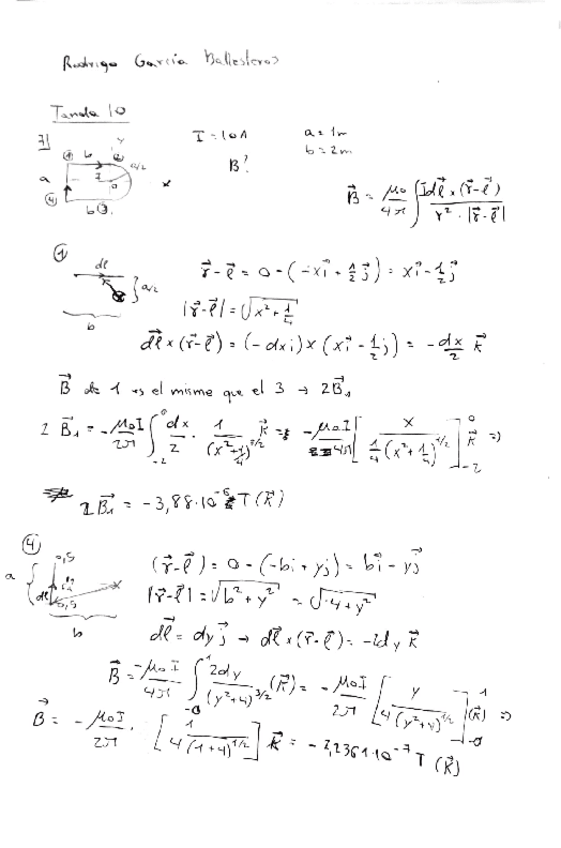 Rodrigo García Ballesteros
Tanda 10
7) I = 10A a = 1m
b = 2m
B?
① b ② y a/2
a I 0 x
④ b ③
B⃗ = μ₀/4π ∫ Idl⃗ × (r⃗-l⃗) / r² · |r⃗-l⃗|
① dl a/2 b
r⃗ - l⃗ = 0 - (-xi⃗ + 1/2 j⃗) = xi⃗ - 1/2 j⃗
|r⃗-l⃗| = √(x² + 1/4)
dl⃗ × (r⃗-l⃗) = (-dxi) × (xi⃗ - 1/2 j) = -dx/2 k⃗
B⃗ de 1 es el mismo que el 3 → 2B⃗₁
2 B⃗₁ = -μ₀I/2π ∫₋₂⁰ dx/2 · 1/(x²+1/4)^3/2 k⃗ = -μ₀I/4π [ x / 1/4 (x²+1/4)^1/2 ]₋₂⁰ k⃗ =>
2B⃗₁ = -3,88·10⁻⁶ T (k⃗)
④ a 0,5 dl 0,5 b x
(r⃗-l⃗) = 0 - (-bi + yj) = bi⃗ - yj⃗
|r⃗-l⃗| = √(b² + y²) = √(4+y²)
dl⃗ = dyj⃗ → dl⃗ × (r⃗-l⃗) = -2dy k⃗
B⃗ = -μ₀I/4π ∫₋₀¹ 2dy/(y²+4)^3/2 (k⃗) = -μ₀I/2π [ y / 4(y²+4)^1/2 ]₋₀¹ (k⃗) =>
B⃗ = -μ₀I/2π · [ 1 / 4(1+4)^1/2 ] k⃗ = -2,2361·10⁻⁷ T (k⃗)